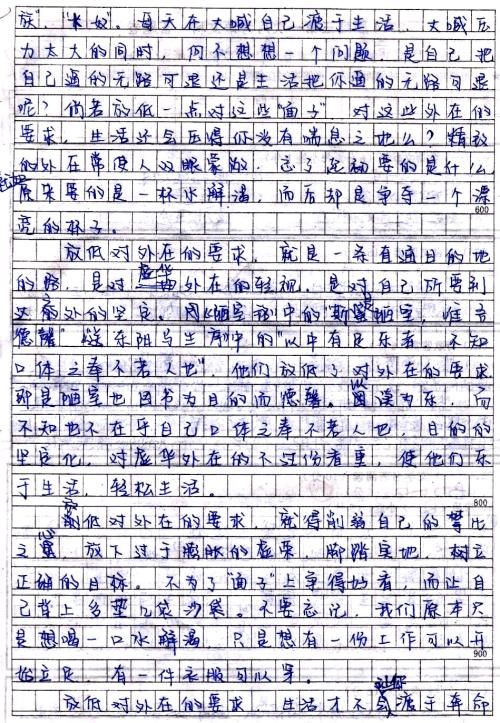 族”，“卡奴”。每天在大喊自己疲于生活，大喊压
力太大的同时，何不想想一个问题，是自己把
自己逼的无路可退还是生活把你逼的无路可退
呢？倘若放低一点对这些“面子”，对这些外在的
要求，生活还会压得你没有喘息之地么？精致
的外在常使人双眼蒙蔽，忘了起初要的是什么。
原来要的是一杯水解渴，而后却是争夺一个漂
600
亮的杯子。
放低对外在的要求，就是一条有通目的地
的路，是对虚华外在的轻视，是对自己所要到
达 处的坚定。 《陋室铭》中的“斯是陋室，惟吾
德馨” 《送东阳马生序》中的“以中有足乐者，不知
口体之奉不若人也”，他们放低了对外在的要求，
即是陋室也因书为目的而德馨。 以读为乐，而
不知也不在乎自己口体之奉不若人也，目的的
坚定化，对虚华外在的不过份看重，使他们乐
于生活，轻松生活。
800
放低对外在的要求，就得削弱自己的攀比
之心，放下过于膨胀的虚荣，脚踏实地，树立
正确的目标。不为了“面子”上争得好看，而让自
己背上多垫几袋沙袋。不要忘记，我们原本只
是想喝一口水解渴，只是想有一份工作可以开
900
始立足，有一件衣服可以穿。
放低对外在的要求，生活才不 让你疲于奔命